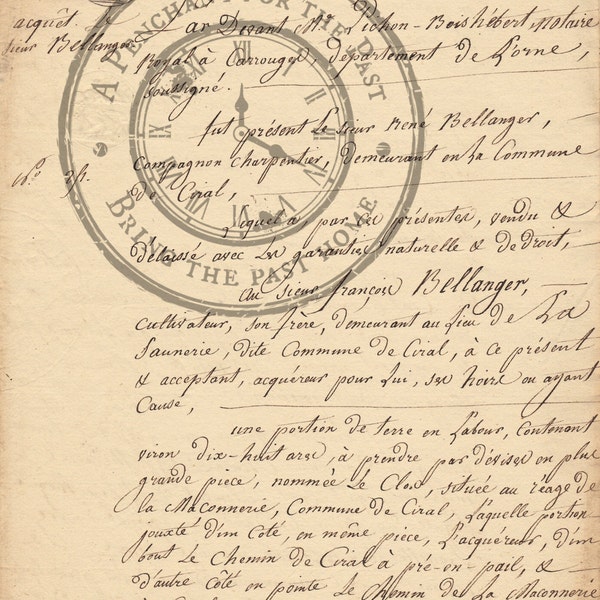 acquêt. Le
Sieur Bellanger
160 3f.
A PENCHANT FOR THE PAST
BRING THE PAST HOME
XII
II
III
IIII
V
VI
VII
VIII
IX
Par Devant Mr. Pichon-Boishébert Notaire
Royal à Carrouges, département de L'orne,
soussigné.
fut présent Le Sieur René Bellanger,
Compagnon charpentier, demeurant en La Commune
de Ciral,
Lequel a, par Les présentes, vendu &
délaissé avec Les garanties naturelle & de droit,
Au Sieur françois Bellanger,
cultivateur, son frère, demeurant au Lieu de La
Saunerie, dite Commune de Ciral, à ce présent
& acceptant, acquéreur pour Lui, ses hoirs ou ayant
Cause,
une portion de terre en Labour, contenant
viron dix-huit ares, à prendre par devise en plus
grande piece, nommée Le Clos, située au réage de
la Maconnerie, Commune de Ciral, Laquelle portion
jouxte d'un Coté, en même piece, L'acquéreur, d'un
bout Le Chemin de Ciral à pré-en-pail, &
d'autre côté en pointe Le Chemin de La Maconnerie